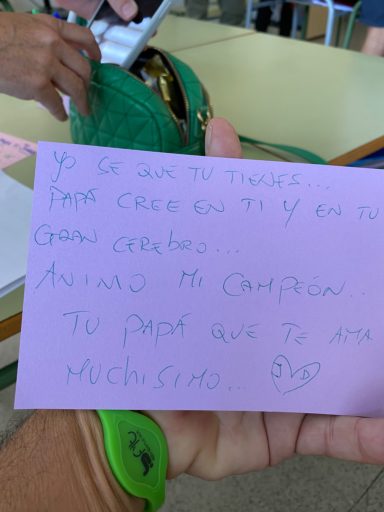 YO SE QUE TU TIENES...
PAPÁ CREE EN TI Y EN TU
GRAN CEREBRO...
ÁNIMO MI CAMPEÓN..
TU PAPÁ QUE TE AMA
MUCHISIMO... J D